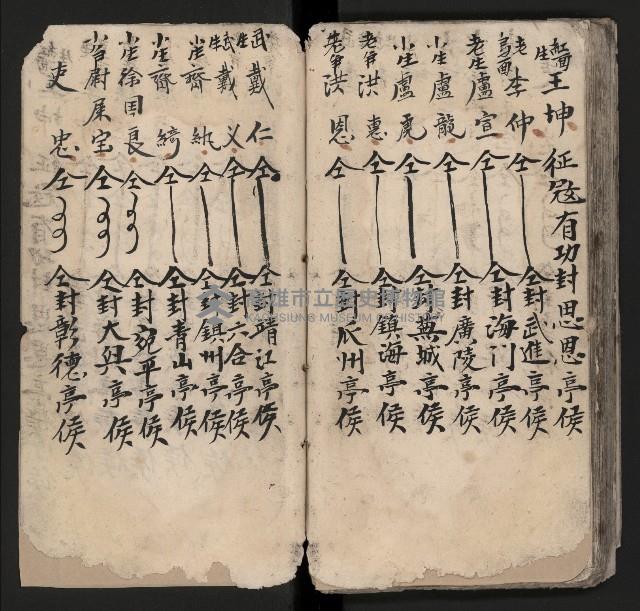 紅面生王坤征寇有功封恩恩亭侯
老生李仲仝仝封武進亭侯
老生盧宣仝仝封海门亭侯
小生盧龍仝仝封廣陵亭侯
小生盧虎仝仝封蕪城亭侯
老爷洪惠仝仝封鎮海亭侯
老爷洪恩仝仝封瓜州亭侯
武生戴仁仝仝封靖江亭侯
武生戴义仝仝封六合亭侯
小生齊紈仝仝封鎮州亭侯
小生齊綺仝仝封青山亭侯
小生徐国良仝仝封宛平亭侯
小官尉屎宝仝仝封大興亭侯
吏忠仝仝封彰德亭侯
高雄市立歷史博物館
KAOHSIUNG MUSEUM OF HISTORY